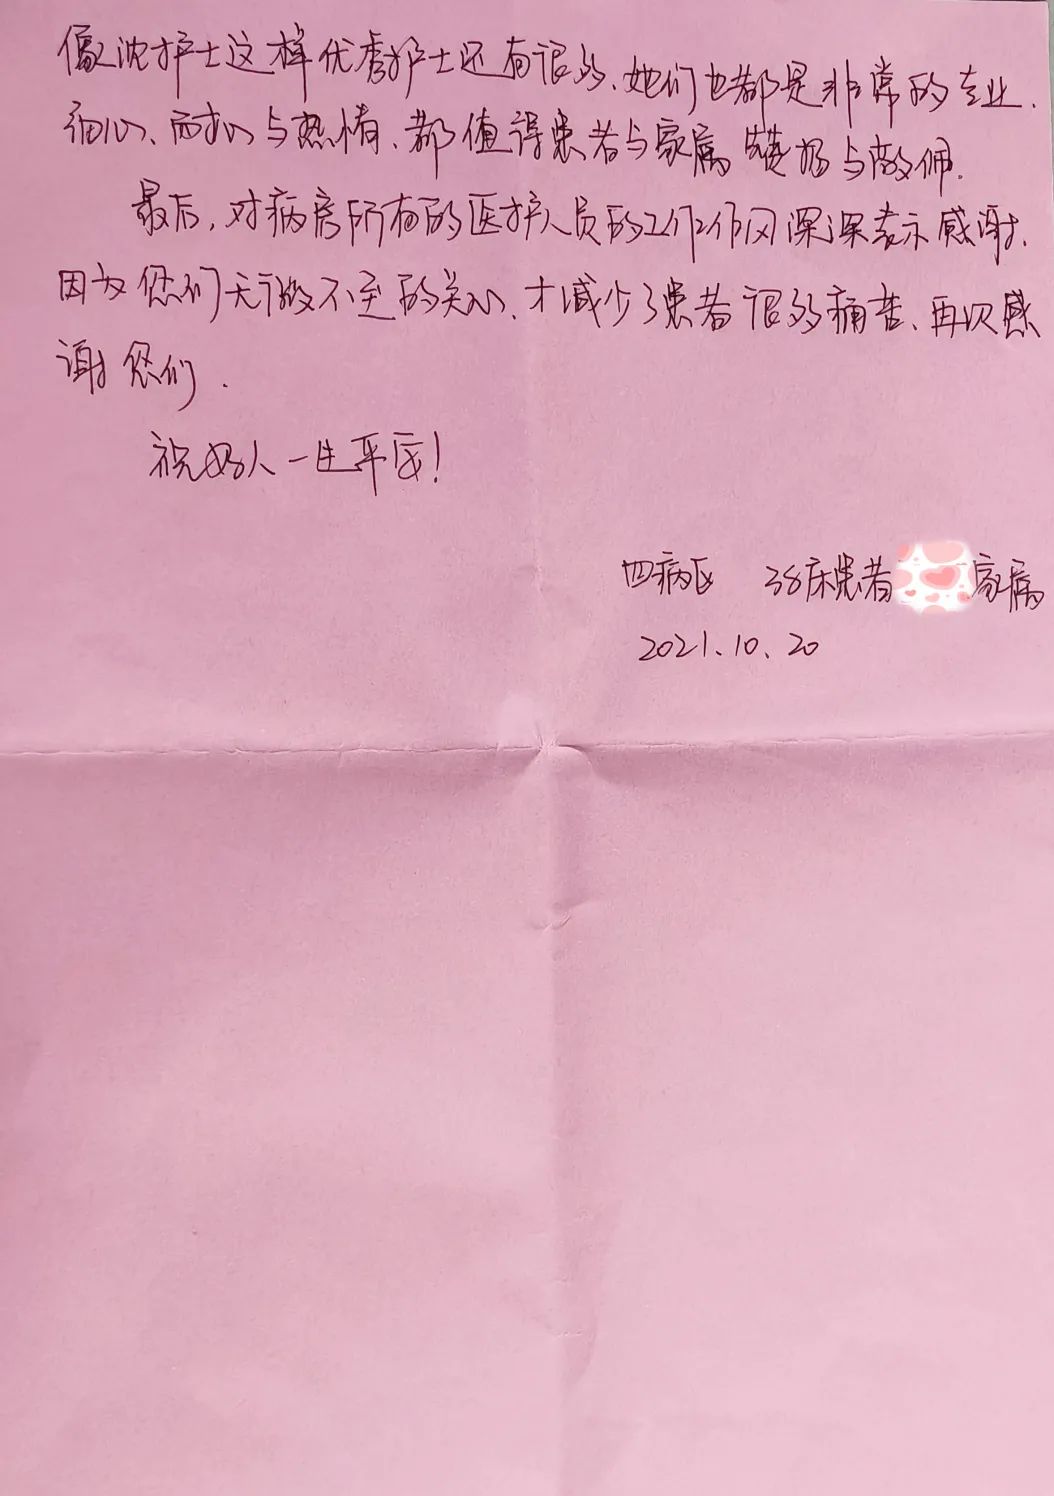 像沈护士这样优秀护士还有很多、她们也都是非常的专业、
细心、耐心与热情、都值得患者与家属赞扬与敬佩.
最后,对病房所有的医护人员的工作作风深深表示感谢.
因为您们无微不至的关心、才减少了患者很多痛苦、再次感
谢您们.
祝好人一生平安!
四病区 38床患者 家属
2021.10.20